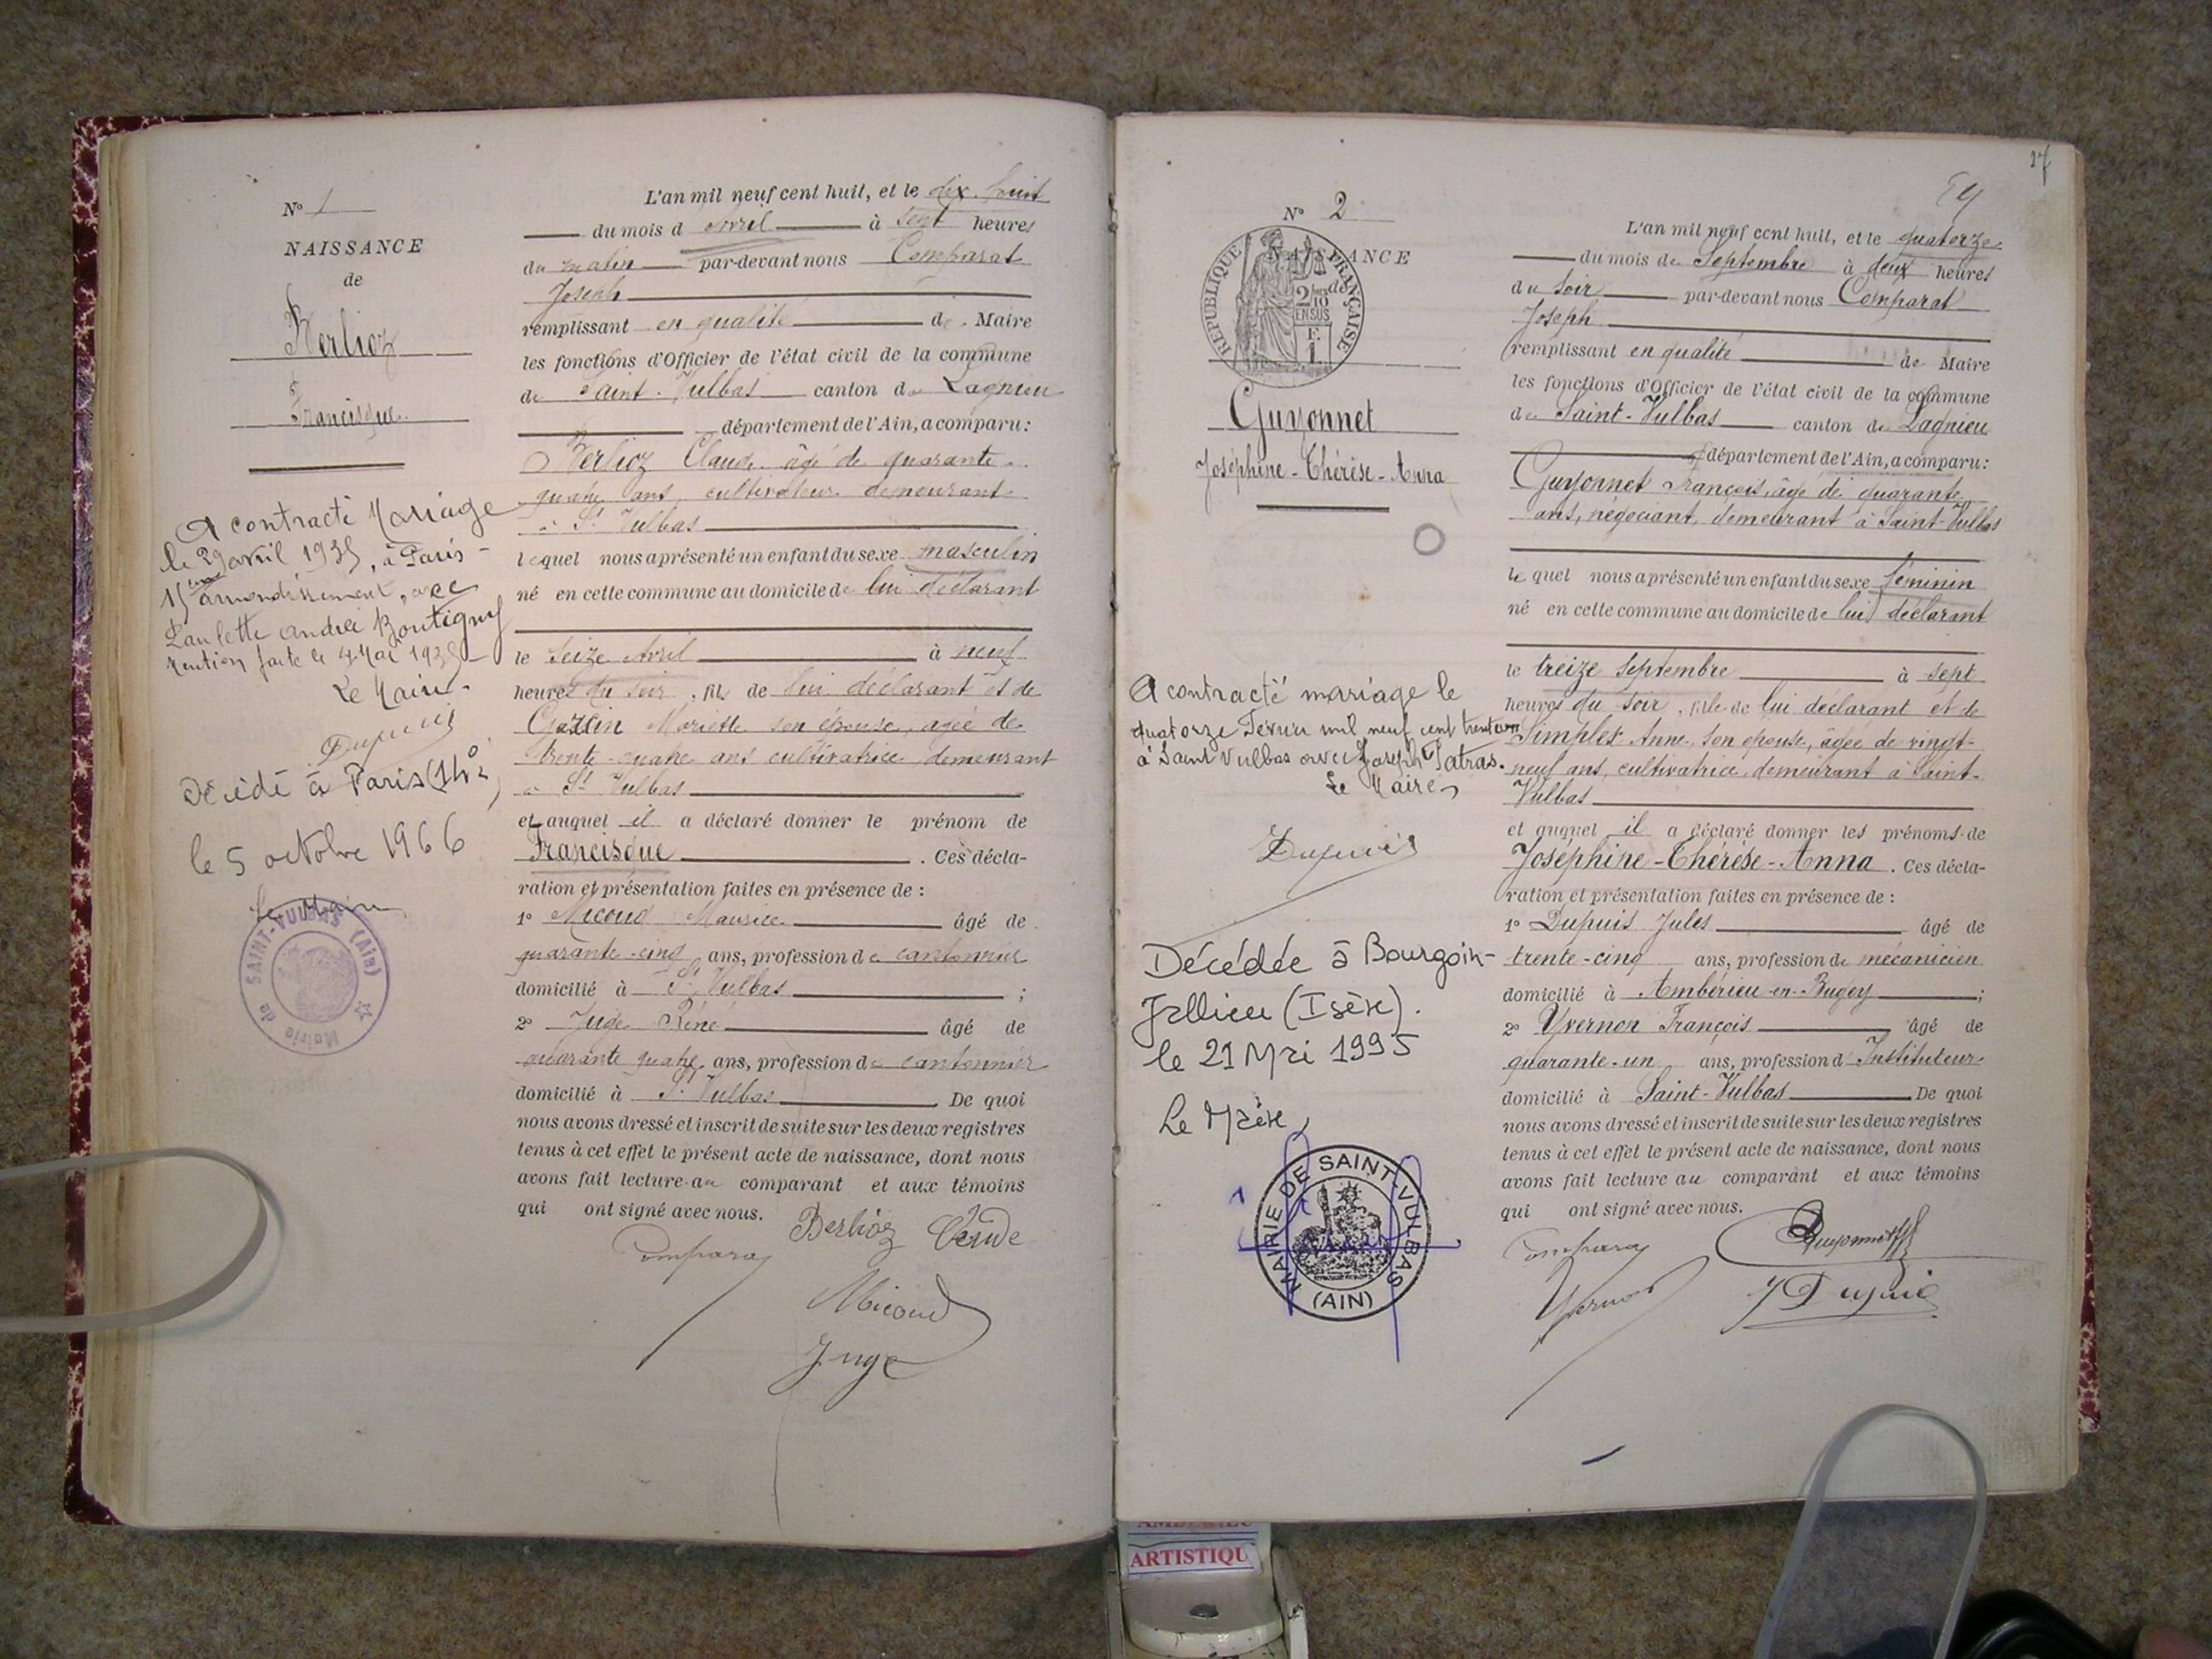 N° 1
NAISSANCE
de
Berlioz
Francisque
A contracté Mariage
le 29 avril 1935, à Paris
15ème arrondissement, avec
Paulette andrée Boutigny
Mention faite le 4 Mai 1935
Le Maire.
Dupuis
Décédé à Paris (14°)
le 5 octobre 1966
Le Maire
Mairie de SAINT-VULBAS (Ain)
L'an mil neuf cent huit, et le dix-huit
du mois d'avril à sept heures
du matin par-devant nous Comparat
Joseph
remplissant en qualité de Maire
les fonctions d'Officier de l'état civil de la commune
de Saint-Vulbas canton de Lagnieu
département de l'Ain, a comparu:
Berlioz Claude âgé de quarante-
quatre ans, cultivateur demeurant
à St Vulbas
lequel nous a présenté un enfant du sexe masculin
né en cette commune au domicile de lui déclarant
le seize Avril à neuf
heures du soir, fils de lui déclarant et de
Mariette son épouse, agée de
trente-quatre ans cultivatrice demeurant
à St Vulbas
et auquel il a déclaré donner le prénom de
Francisque. Ces décla-
ration et présentation faites en présence de :
1° Micoud Maurice âgé de
quarante-cinq ans, profession de cantonnier
domicilié à St Vulbas ;
2° Juge Réné âgé de
quarante quatre ans, profession de cantonnier
domicilié à St Vulbas. De quoi
nous avons dressé et inscrit de suite sur les deux registres
tenus à cet effet le présent acte de naissance, dont nous
avons fait lecture au comparant et aux témoins
qui ont signé avec nous.
Berlioz Claude
Comparat
Micoud
Juge
27
N° 2
NAISSANCE
de
REPUBLIQUE FRANÇAISE
2/10 EN SUS
F.
1.
Guyonnet
Joséphine-Thérèse-Anna
A contracté mariage le
quatorze Février mil neuf cent trente un
à Saint Vulbas avec Joseph Patras.
Le Maire
Dupuis
Décédée à Bourgoin-
Jallieu (Isère).
le 21 Mai 1995
Le Maire,
MAIRIE DE SAINT-VULBAS
(AIN)
L'an mil neuf cent huit, et le quatorze
du mois de Septembre à deux heures
du soir par-devant nous Comparat
Joseph
remplissant en qualité de Maire
les fonctions d'Officier de l'état civil de la commune
de Saint-Vulbas canton de Lagnieu
département de l'Ain, a comparu:
Guyonnet François, âgé de quarante
ans, négociant, demeurant à Saint-Vulbas
lequel nous a présenté un enfant du sexe féminin
né en cette commune au domicile de lui déclarant
le treize septembre à sept
heures du soir, fille de lui déclarant et de
Simplex Anne, son épouse, âgée de vingt-
neuf ans, cultivatrice, demeurant à Saint-
Vulbas
et auquel il a déclaré donner les prénoms de
Joséphine-Thérèse-Anna. Ces décla-
ration et présentation faites en présence de :
1° Dupuis Jules âgé de
trente-cinq ans, profession de mécanicien
domicilié à Ambérieu-en-Bugey ;
2° Yvernon François âgé de
quarante-un ans, profession d'Instituteur
domicilié à Saint-Vulbas De quoi
nous avons dressé et inscrit de suite sur les deux registres
tenus à cet effet le présent acte de naissance, dont nous
avons fait lecture au comparant et aux témoins
qui ont signé avec nous.
Comparat
Guyonnet
Yvernon
J Dupuis
ARTISTIQU